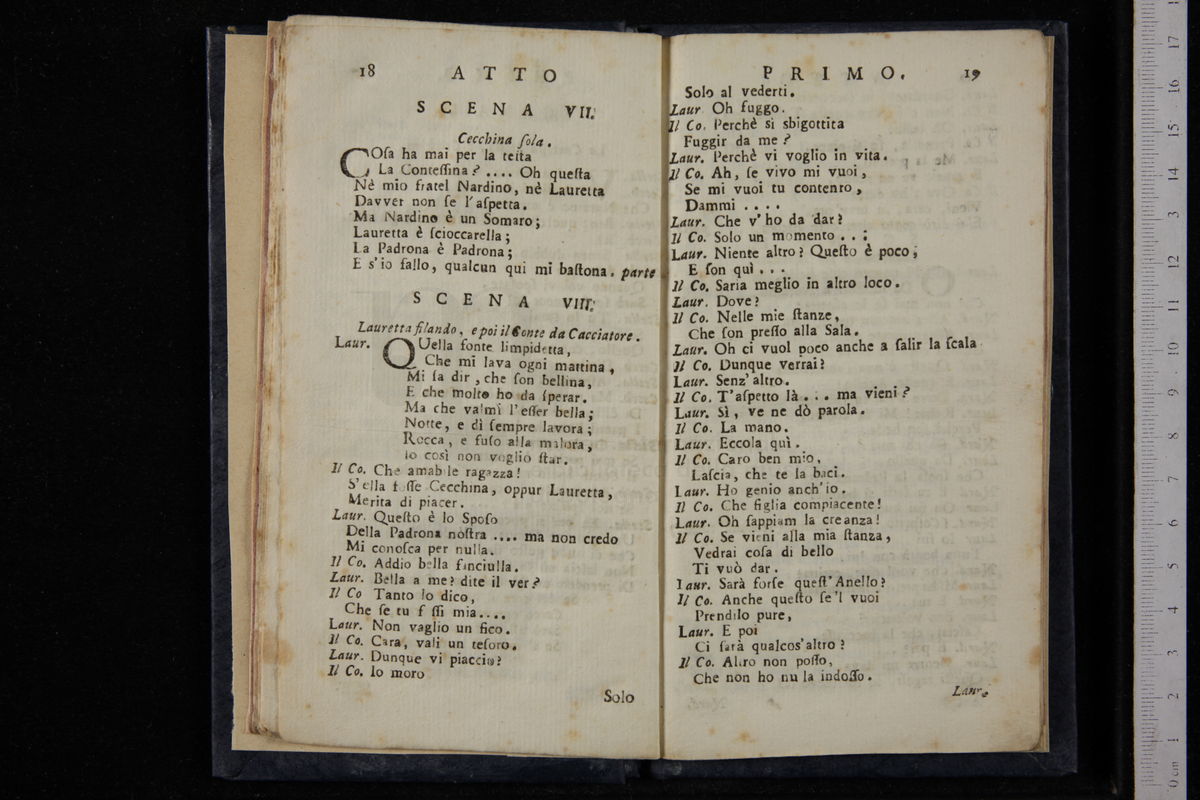 18 ATTO
SCENA VII.
Cecchina ſola.
COſa ha mai per la teſta
La Conteſſina? .... Oh queſta
Nè mio fratel Nardino, nè Lauretta
Davver non ſe l'aſpetta.
Ma Nardino è un Somaro;
Lauretta è ſcioccarella;
La Padrona è Padrona;
E s'io fallo, qualcun quì mi baſtona. parte
SCENA VIII.
Lauretta filando, e poi il Conte da Cacciatore.
Laur. QUella fonte limpidetta,
Che mi lava ogni mattina,
Mi ſa dir, che ſon bellina,
E che molto ho da ſperar.
Ma che va'mi l'eſſer bella;
Notte, e dì ſempre lavora;
Rocca, e fuſo alla malora,
Io così non voglio ſtar.
Il Co. Che amabile ragazza!
S'ella foſſe Cecchina, oppur Lauretta,
Merita di piacer.
Laur. Queſto è lo Spoſo
Della Padrona noſtra .... ma non credo
Mi conoſca per nulla.
Il Co. Addio bella fanciulla.
Laur. Bella a me? dite il ver?
Il Co Tanto lo dico,
Che ſe tu f ſſi mia....
Laur. Non vaglio un fico.
Il Co. Cara, vali un teſoro.
Laur. Dunque vi piaccio?
Il Co. Io moro
Solo
PRIMO. 19
Solo al vederti.
Laur. Oh fuggo.
Il Co. Perchè sì sbigottita
Fuggir da me?
Laur. Perchè vi voglio in vita.
Il Co. Ah, ſe vivo mi vuoi,
Se mi vuoi tu contento,
Dammi ....
Laur. Che v'ho da dar?
Il Co. Solo un momento . . ;
Laur. Niente altro? Queſto è poco;
E ſon quì . . .
Il Co. Saria meglio in altro loco.
Laur. Dove?
Il Co. Nelle mie ſtanze,
Che ſon preſſo alla Sala.
Laur. Oh ci vuol poco anche a ſalir la ſcala
Il Co. Dunque verrai?
Laur. Senz'altro.
Il Co. T'aſpetto là . . . ma vieni?
Laur. Sì, ve ne dò parola.
Il Co. La mano.
Laur. Eccola quì.
Il Co. Caro ben mio,
Laſcia, che te la baci.
Laur. Ho genio anch'io.
Il Co. Che figlia compiacente!
Laur. Oh ſappiam la creanza!
Il Co. Se vieni alla mia ſtanza,
Vedrai coſa di bello
Ti vuò dar.
Laur. Sarà forſe queſt'Anello?
Il Co. Anche queſto ſe'l vuoi
Prendilo pure,
Laur. E poi
Ci ſarà qualcos'altro?
Il Co. Altro non poſſo,
Che non ho nu la indoſſo.
Laur.